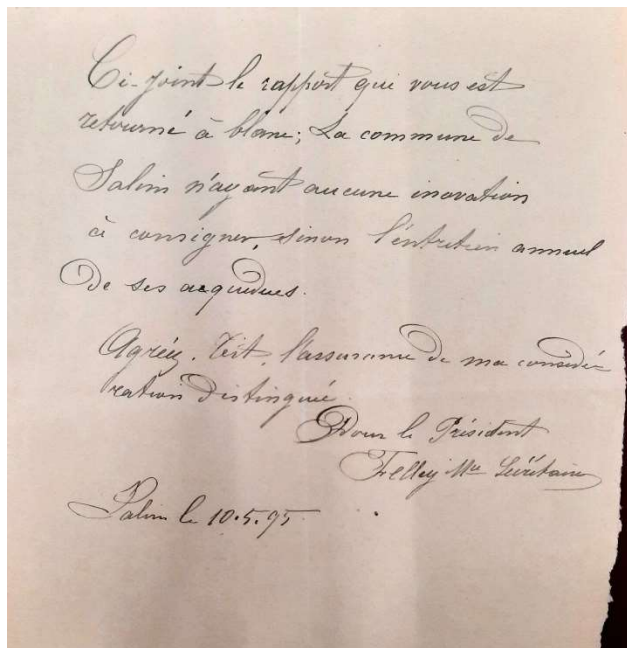 Ci-joint le rapport qui vous est
retourné à blanc; La commune de
Salin n'ayant aucune inovation
à consigner, sinon l'entretien annuel
De ses acqueducs.
Agréez, Tit, l'assurance de ma considé
ration distinguée.
Pour le Président
Felley Secrétaire
Salin le 10.5.95